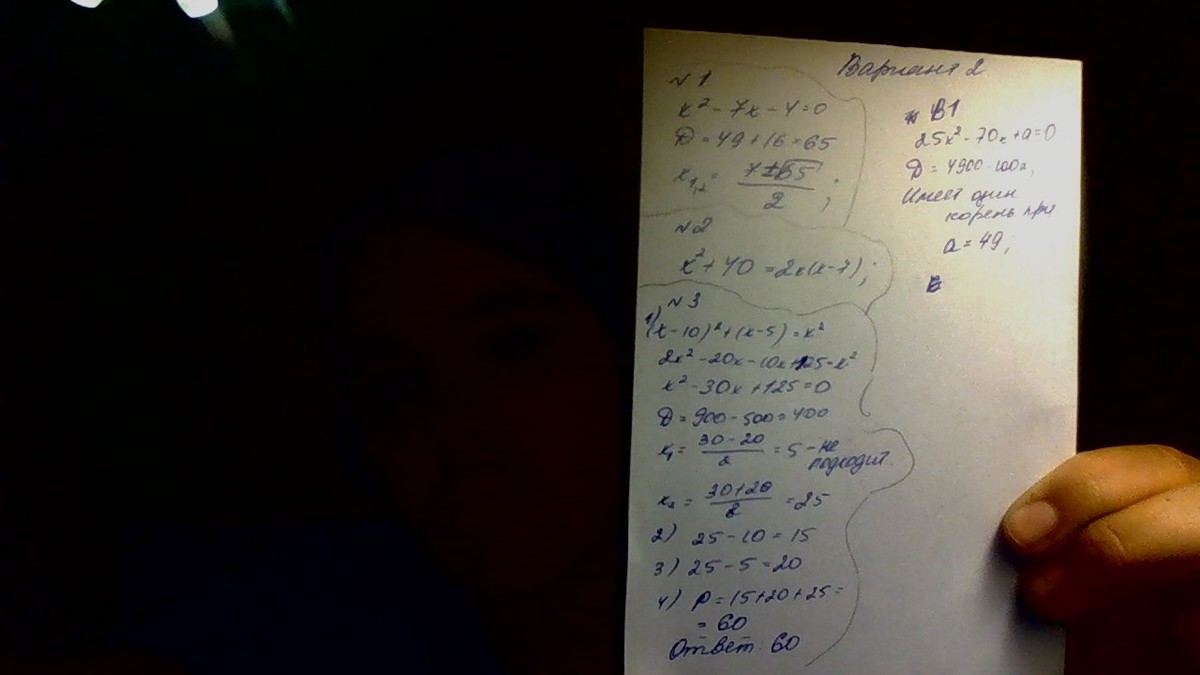 Вариант 2
№ 1
x² - 7x - 4 = 0
D = 49 + 16 = 65
x₁,₂ = (7 ± √65) / 2 ;
№ 2
x² + 40 = 2x(x - 7) ;
№ 3
1) (x - 10)² + (x - 5) = x²
2x² - 20x - 10x + 125 = x²
x² - 30x + 125 = 0
D = 900 - 500 = 400
x₁ = (30 - 20) / 2 = 5 - не
подходит.
x₂ = (30 + 20) / 2 = 25
2) 25 - 10 = 15
3) 25 - 5 = 20
4) P = 15 + 20 + 25 =
= 60
Ответ: 60
B1
25x² - 70x + a = 0
D = 4900 - 100a ;
Имеет один
корень при
a = 49 ;